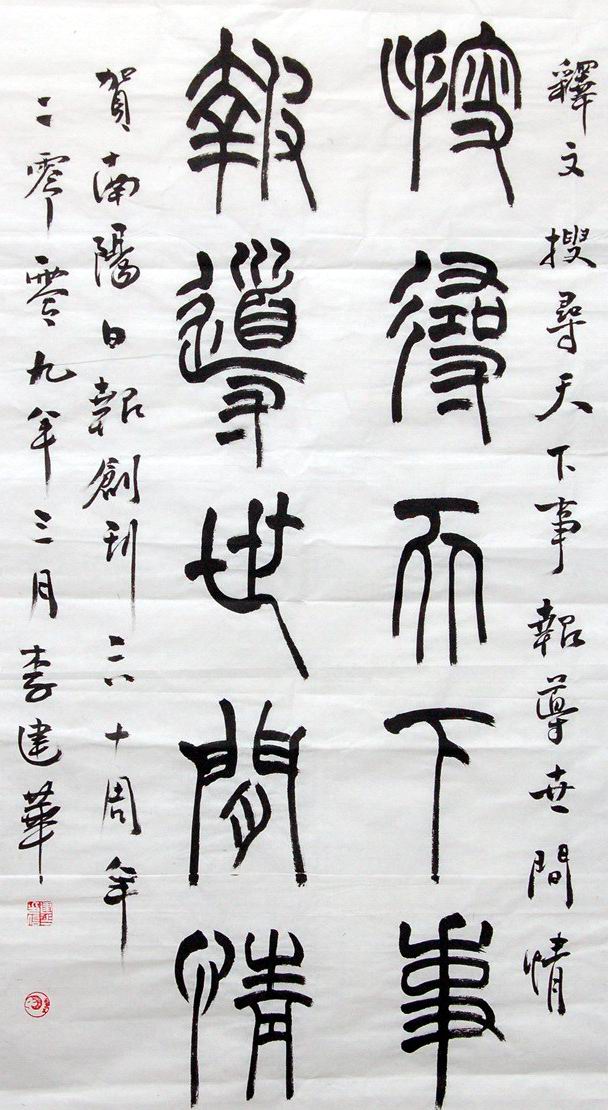 釋文 搜尋天下事報導世間情
搜尋天下事
報導世間情
賀南陽日報創刊六十周年
二零零九年三月李建華